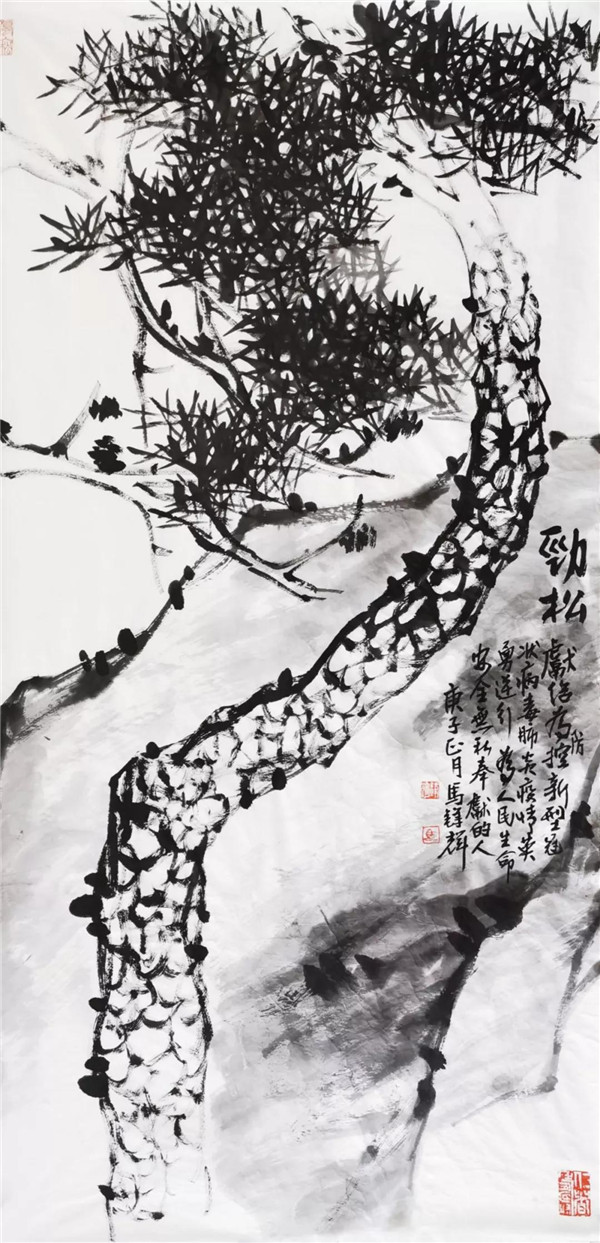 勁松
獻给为防控新型冠
状病毒肺炎疫情英
勇逆行为人民生命
安全無私奉獻的人
庚子正月馬群